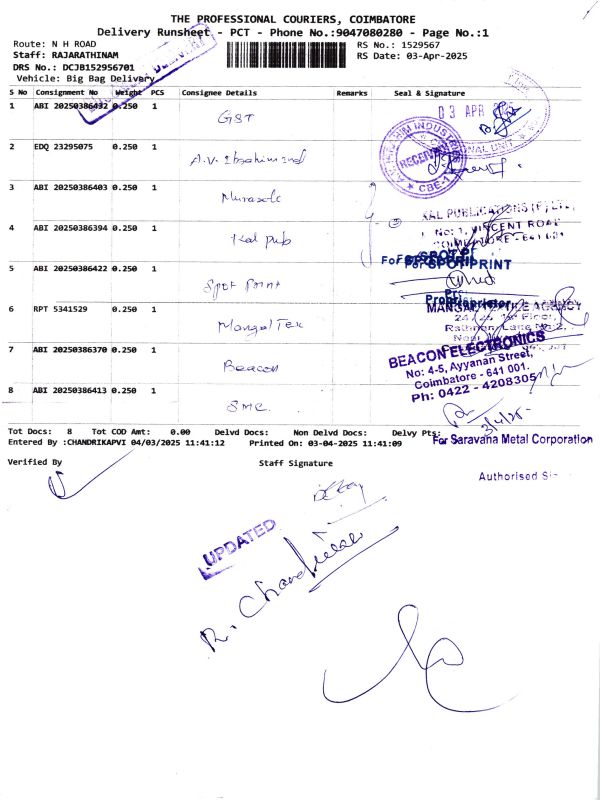 THE PROFESSIONAL COURIERS, COIMBATORE
Delivery Runsheet - PCT - Phone No.:9047080280 - Page No.:1
Route: N H ROAD
RS No.: 1529567
Staff: RAJARATHINAM
RS Date: 03-Apr-2025
DRS No.: DCJB152956701
Vehicle: Big Bag Delivery
S No Consignment No Weight PCS Consignee Details Remarks Seal & Signature
1 ABI 20250386432 0.250 1 GST
03 APR
2 EDQ 23295075 0.250 1 A.V. Ibrahim
RECEIVED
CBE-1
3 ABI 20250386403 0.250 1
KAL PUBLICATIONS (P) LTD.,
No: 1, VINCENT ROAD
COIMBATORE - 641 001
4 ABI 20250386394 0.250 1 Kal pub
For SPOTPRINT
5 ABI 20250386422 0.250 1 Spot Point
Proprietor
6 RPT 5341529 0.250 1 Mangal Tex
7 ABI 20250386370 0.250 1 Beacon
BEACON ELECTRONICS
No: 4-5, Ayyanan Street,
Coimbatore - 641 001.
Ph: 0422 - 4208305
8 ABI 20250386413 0.250 1 SMC
3/4/25
Tot Docs: 8 Tot COD Amt: 0.00 Delvd Docs: Non Delvd Docs: Delvy Pts:
For Saravana Metal Corporation
Entered By :CHANDRIKAPVI 04/03/2025 11:41:12 Printed On: 03-04-2025 11:41:09
Verified By Staff Signature
Authorised
UPDATED